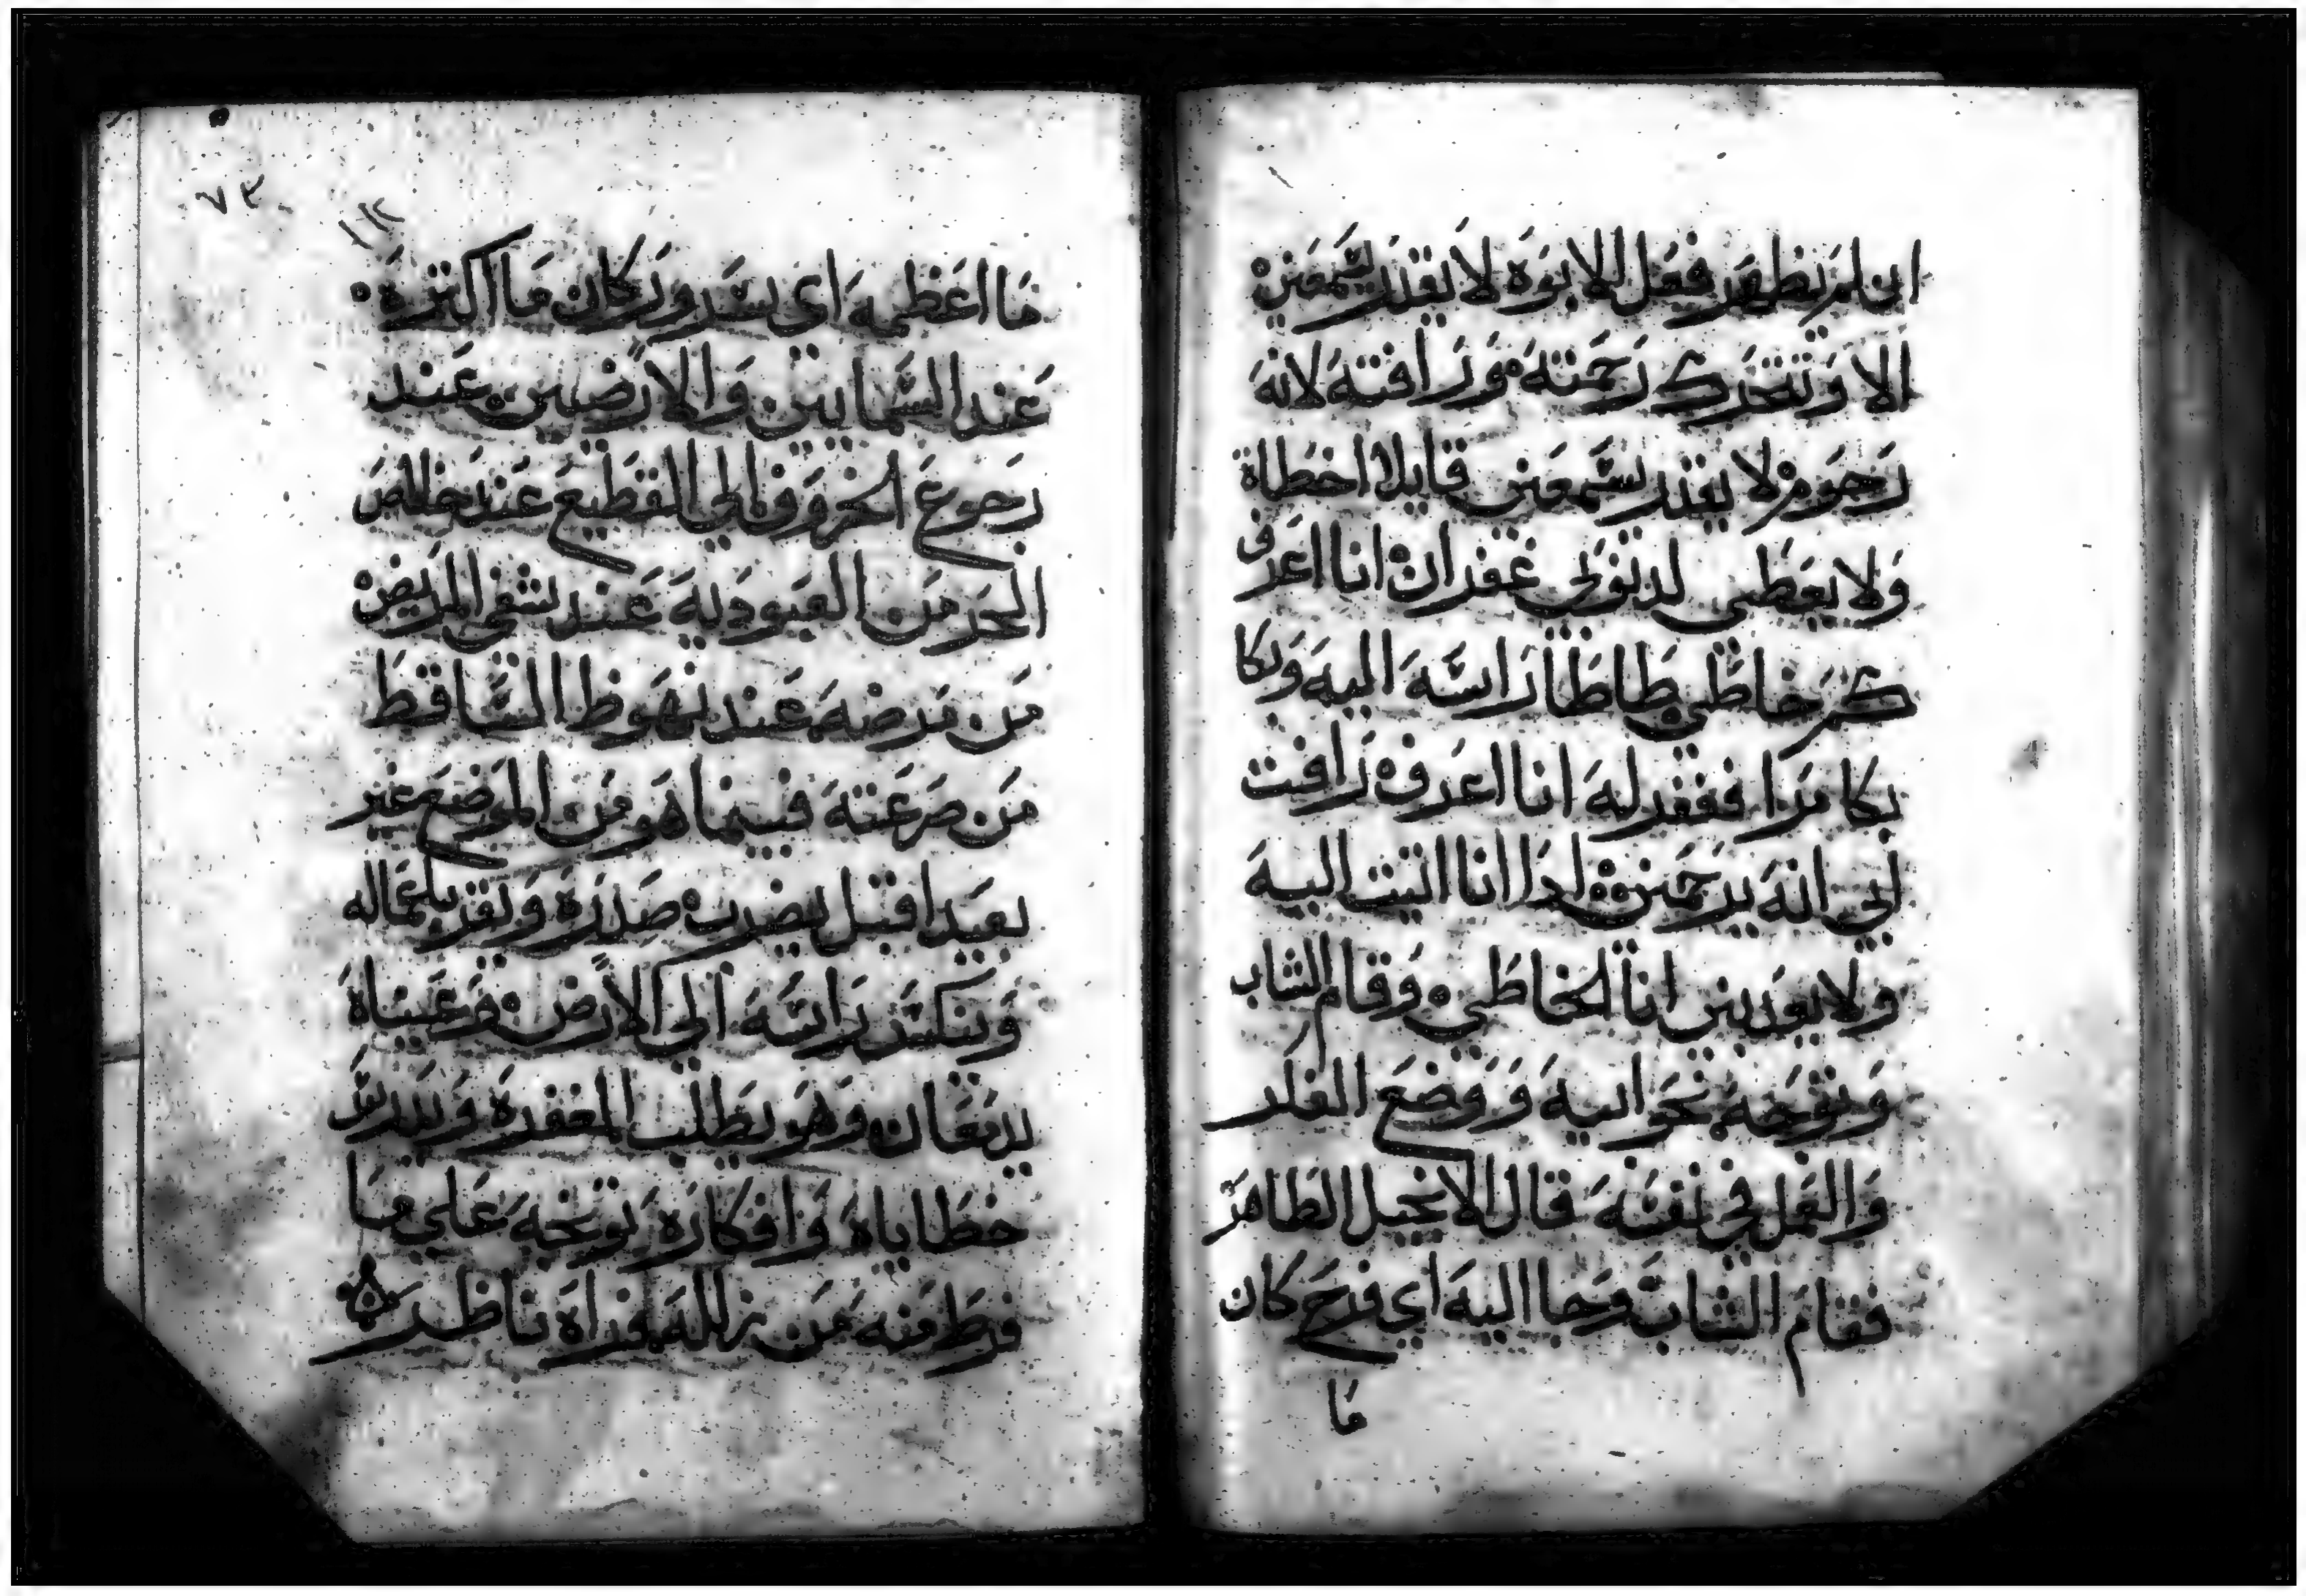 ان لم ينظر فعل الابوة لا يقدر يسمعني
الا وتتحرك رحمته ورافته لانه
رحوم لا يقدر يسمعني قايلا اخطاة
ولا يعطى لدنوبي غفران انا اعرف
كم خاطي طاطا راسه اليه وبكا
بكا مرا فغفر له انا اعرف رافت
ابي انه يرحمني ادا انا اتيت اليه
ولا يعوزني انا الخاطي وقام الشاب
وتوجه نحو ابيه ووضع الفكر
والعمل في نفسه قال الانجيل الطاهر
فقام الشاب وجا اليه اي فرح كان
ما
٧٣
ما اعظمه اي سرور كان ما اكتره
عند السمايين والارضيين عند
رجوع الخروف الي القطيع عند خلاص
الحر من العبودية عند شفي المريض
من مرضه عند نهوظ الساقط
من صرعته فبينما هو من الموضع غير
بعيد اقبل يضرب صدره ويقر باعماله
وينكس راسه الي الارض وعيناه
يدمعان وهو يطلب المغفرة
خطاياه وافكاره توبخه علي ما
فرط منه من زلله فراه ناظر